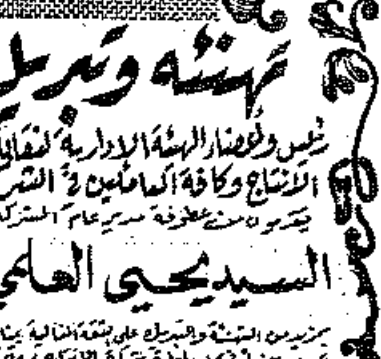 تهنئة وتبريك
رئيس وأعضاء الهيئة الادارية لنقابة
الانتاج وكافة العاملين في الشر
يتقدمون من عطوفة مدير عام الشركة
السيد يحيى العلمي
بمزيد من التهنئة والتبريك على الثقة الغالية